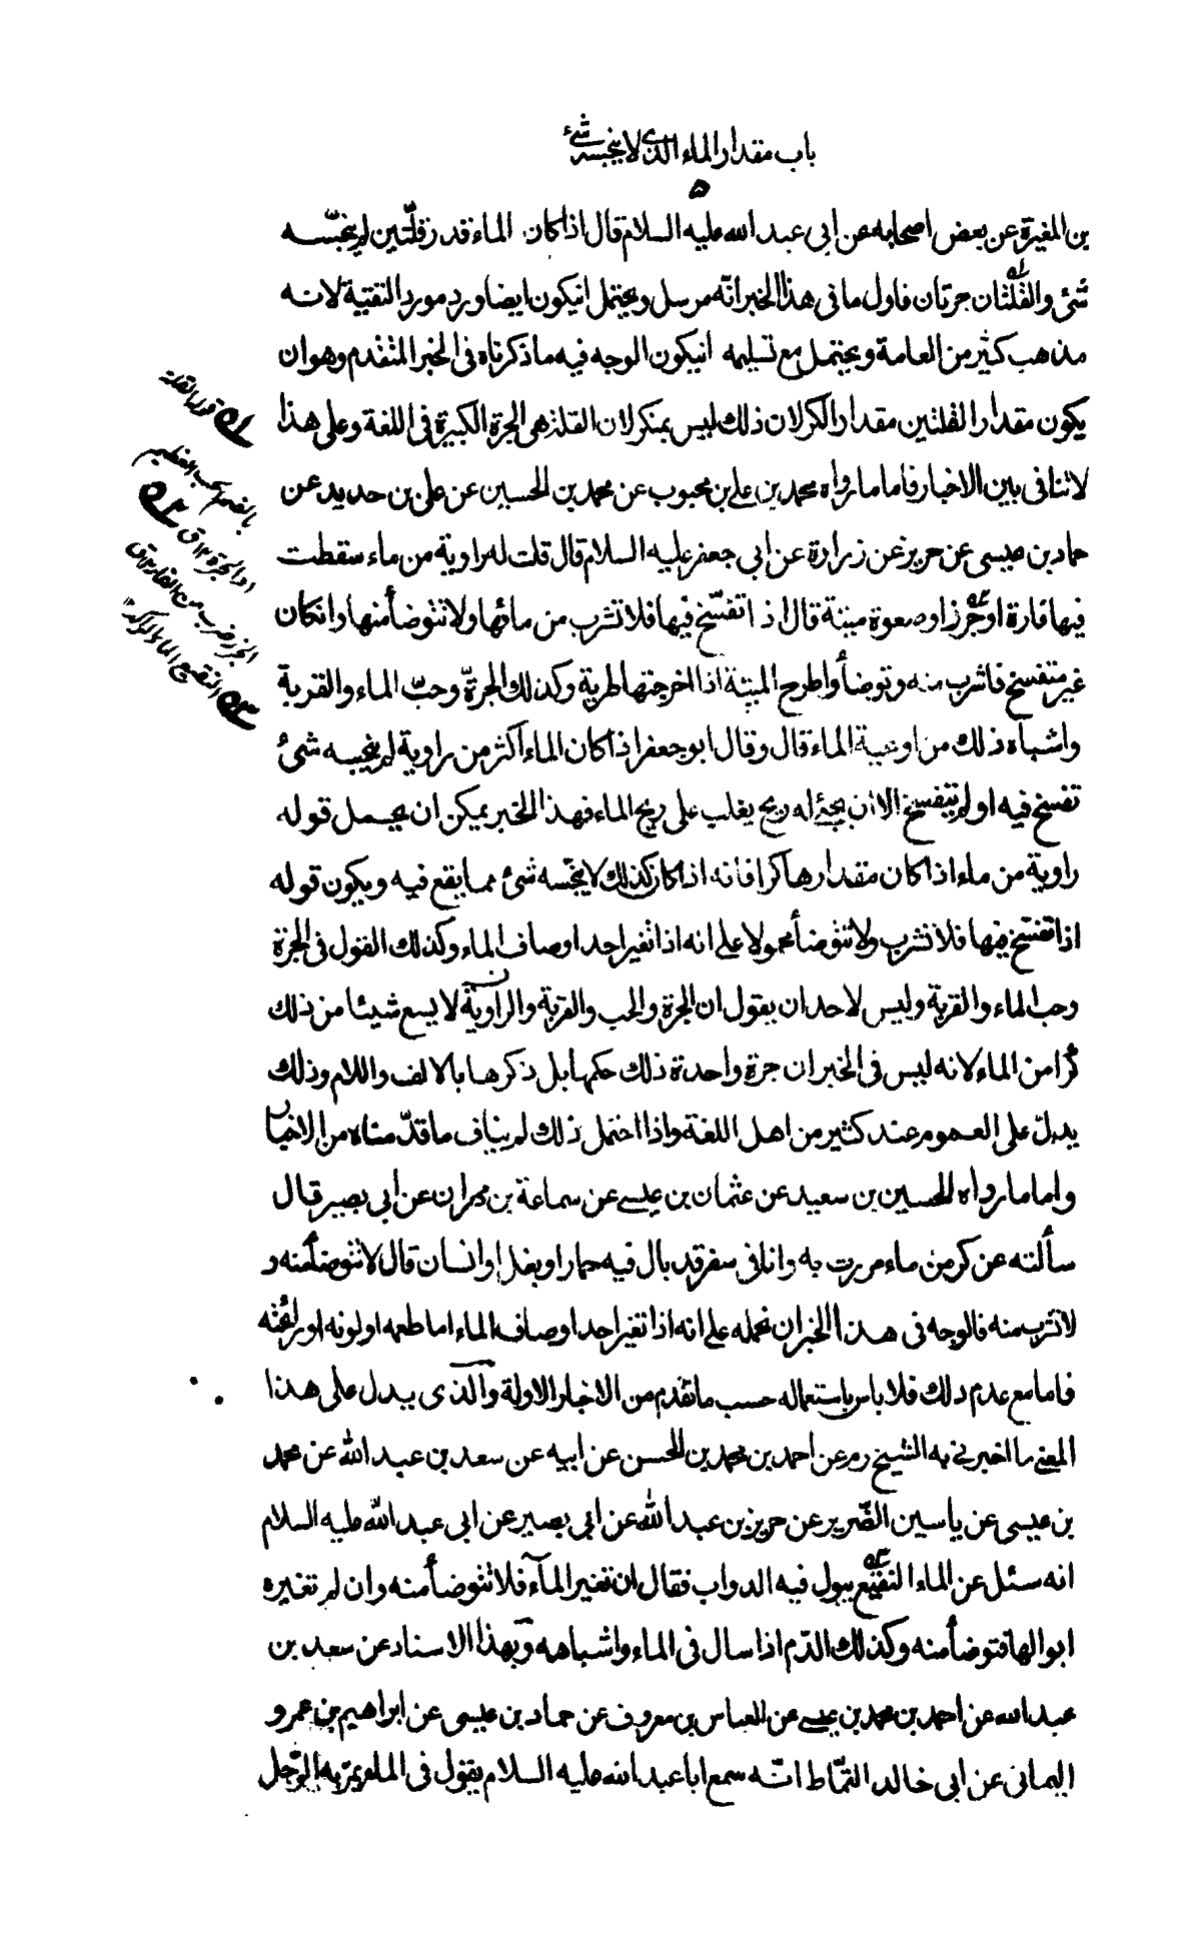 باب مقدار الماء الذي لا ينجسه شيء
۵
بن المغيرة عن بعض اصحابه عن ابي عبد الله عليه السلام قال اذا كان الماء قدر قلّتين لم ينجّسه
شئ والقلّتان جرتان فاول ما في هذا الخبر انّه مرسل ويحتمل انيكون ايضا ورد مورد التقيّة لانه
مذهب كثير من العامة ويحتمل مع تسليمه انيكون الوجه فيه ما ذكرناه في الخبر المتقدم وهو ان
يكون مقدار القلتين مقدار الكر لان ذلك ليس بمنكر لان القلة هي الجرة الكبيرة في اللغة وعلى هذا
لا تنافى بين الاخبار فاما ما رواه محمد بن علي بن محبوب عن محمد بن الحسين عن علي بن حديد عن
حماد بن عيسى عن حريز عن زرارة عن ابي جعفر عليه السلام قال قلت له راوية من ماء سقطت
فيها فارة او جرز او صعوة ميتة قال اذا تفسّخ فيها فلا تشرب من مائها ولا تتوضأ منها وانكان
غير متفسخ فاشرب منه وتوضأ واطرح الميتة اذا اخرجتها طرية وكذلك الجرّة وحبّ الماء والقربة
واشباه ذلك من اوعية الماء قال وقال ابو جعفر اذا كان الماء اكثر من راوية لم ينجسه شئ
تفسخ فيه او لم يتفسخ الا ان يجئ له ريح يغلب على ريح الماء فهذا الخبر يمكن ان يحمل قوله
راوية من ماء اذا كان مقدارها كرا فانه اذا كان كذلك لا ينجّسه شئ مما يقع فيه ويكون قوله
اذا تفسّخ فيها فلا تشرب ولا تتوضأ محمولا على انه اذا تغير احد اوصاف الماء وكذلك القول في الجرة
وحب الماء والقربة وليس لاحد ان يقول ان الجرة والحب والقربة والراوية لا يسع شيئا من ذلك
كرا من الماء لانه ليس في الخبر ان جرة واحدة ذلك حكمها بل ذكرها بالالف واللام وذلك
يدلّ على العموم عند كثير من اهل اللغة واذا احتمل ذلك لم يناف ما قدّمناه من الاخبار
واما ما رواه الحسين بن سعيد عن عثمان بن عيسى عن سماعة بن مهران عن ابي بصير قال
سألته عن كر من ماء مررت به وانا في سفر قد بال فيه حمار او بغل او انسان قال لا تتوضأ منه و
لا تشرب منه فالوجه في هذا الخبر ان نحمله على انه اذا تغير احد اوصاف الماء اما طعمه او لونه او رائحته
فاما مع عدم ذلك فلا باس باستعماله حسب ما تقدم من الاخبار الاولة والّذى يدل على هذا
المعنى ما اخبرني به الشيخ ره عن احمد بن محمد بن الحسن عن ابيه عن سعد بن عبد الله عن محمد
بن عيسى عن ياسين الضّرير عن حريز بن عبد الله عن ابي بصير عن ابي عبد الله عليه السلام
انه سئل عن الماء النقيع يبول فيه الدواب فقال ان تغير المآء فلا تتوضأ منه وان لم تغيره
ابوالها فتوضأ منه وكذلك الدّم اذا سال في الماء واشباهه وبهذا الاسناد عن سعد بن
عبد الله عن احمد بن محمد بن عيسى عن العباس بن معروف عن حماد بن عيسى عن ابراهيم بن عمرو
اليمانى عن ابي خالد القمّاط انّه سمع ابا عبد الله عليه السلام يقول في الماء يمرّ به الرّجل